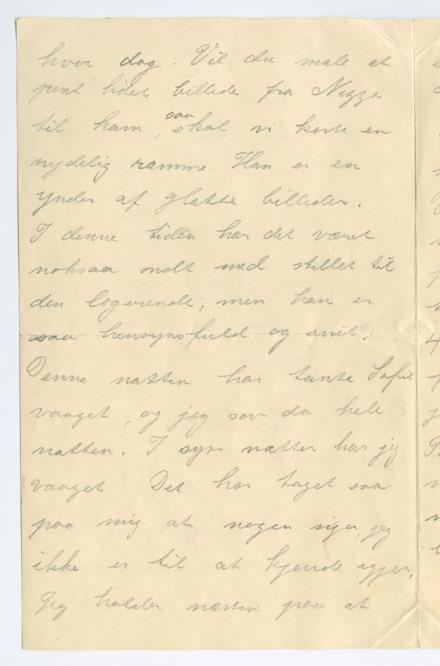 hver dag. Vil du male et
pent lidet billede fra Nizza
til ham, saa skal vi koste en
nydelig ramme Han er en
ynder af glatte billeder.
I denne tiden har det været
noksaa ondt med stellet til
den logerende; men han er
saa hensynsfuld og snil.
Denne natten har tante Sofie
vaaget, og jeg sov da hele
natten. I syv nætter har jeg
vaaget Det har taget saa
paa mig at nogen siger jeg
ikke er til at kjende igjen.
Jeg holder næsten paa at